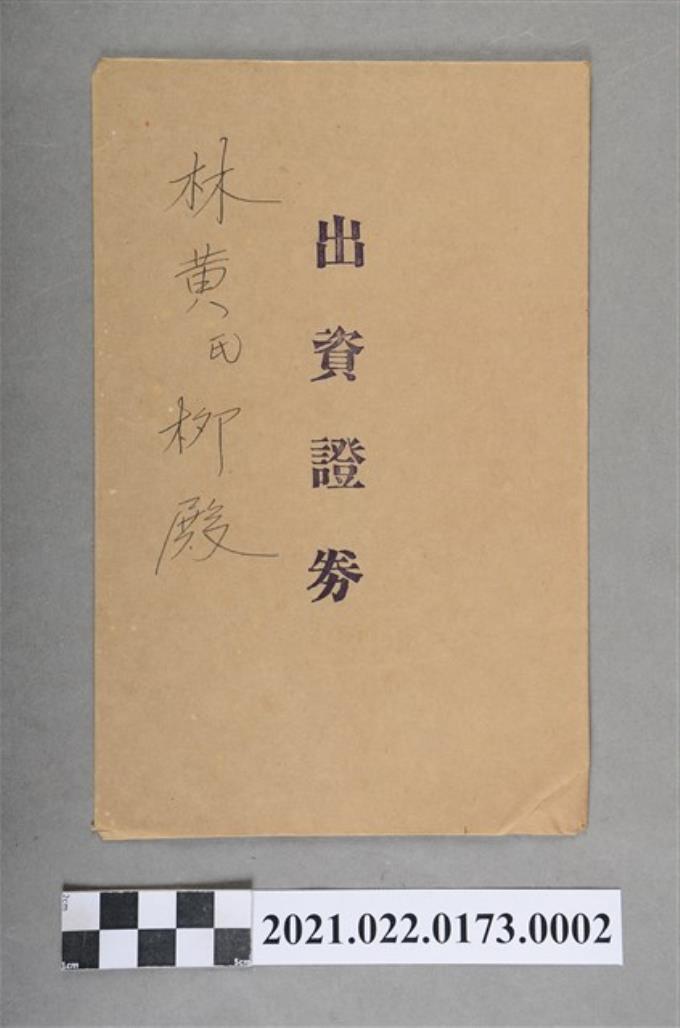 出資證券
林黃氏柳殿
2cm
1cm
5cm
2021.022.0173.0002